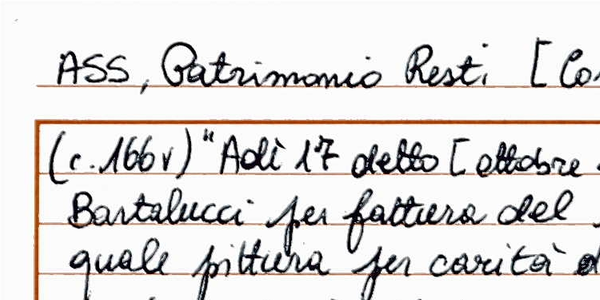 ASS, Patrimonio Resti [Co
(c. 166v) "Adì 17 detto [ottobre
Bartalucci per fattura del
quale pittura per carità